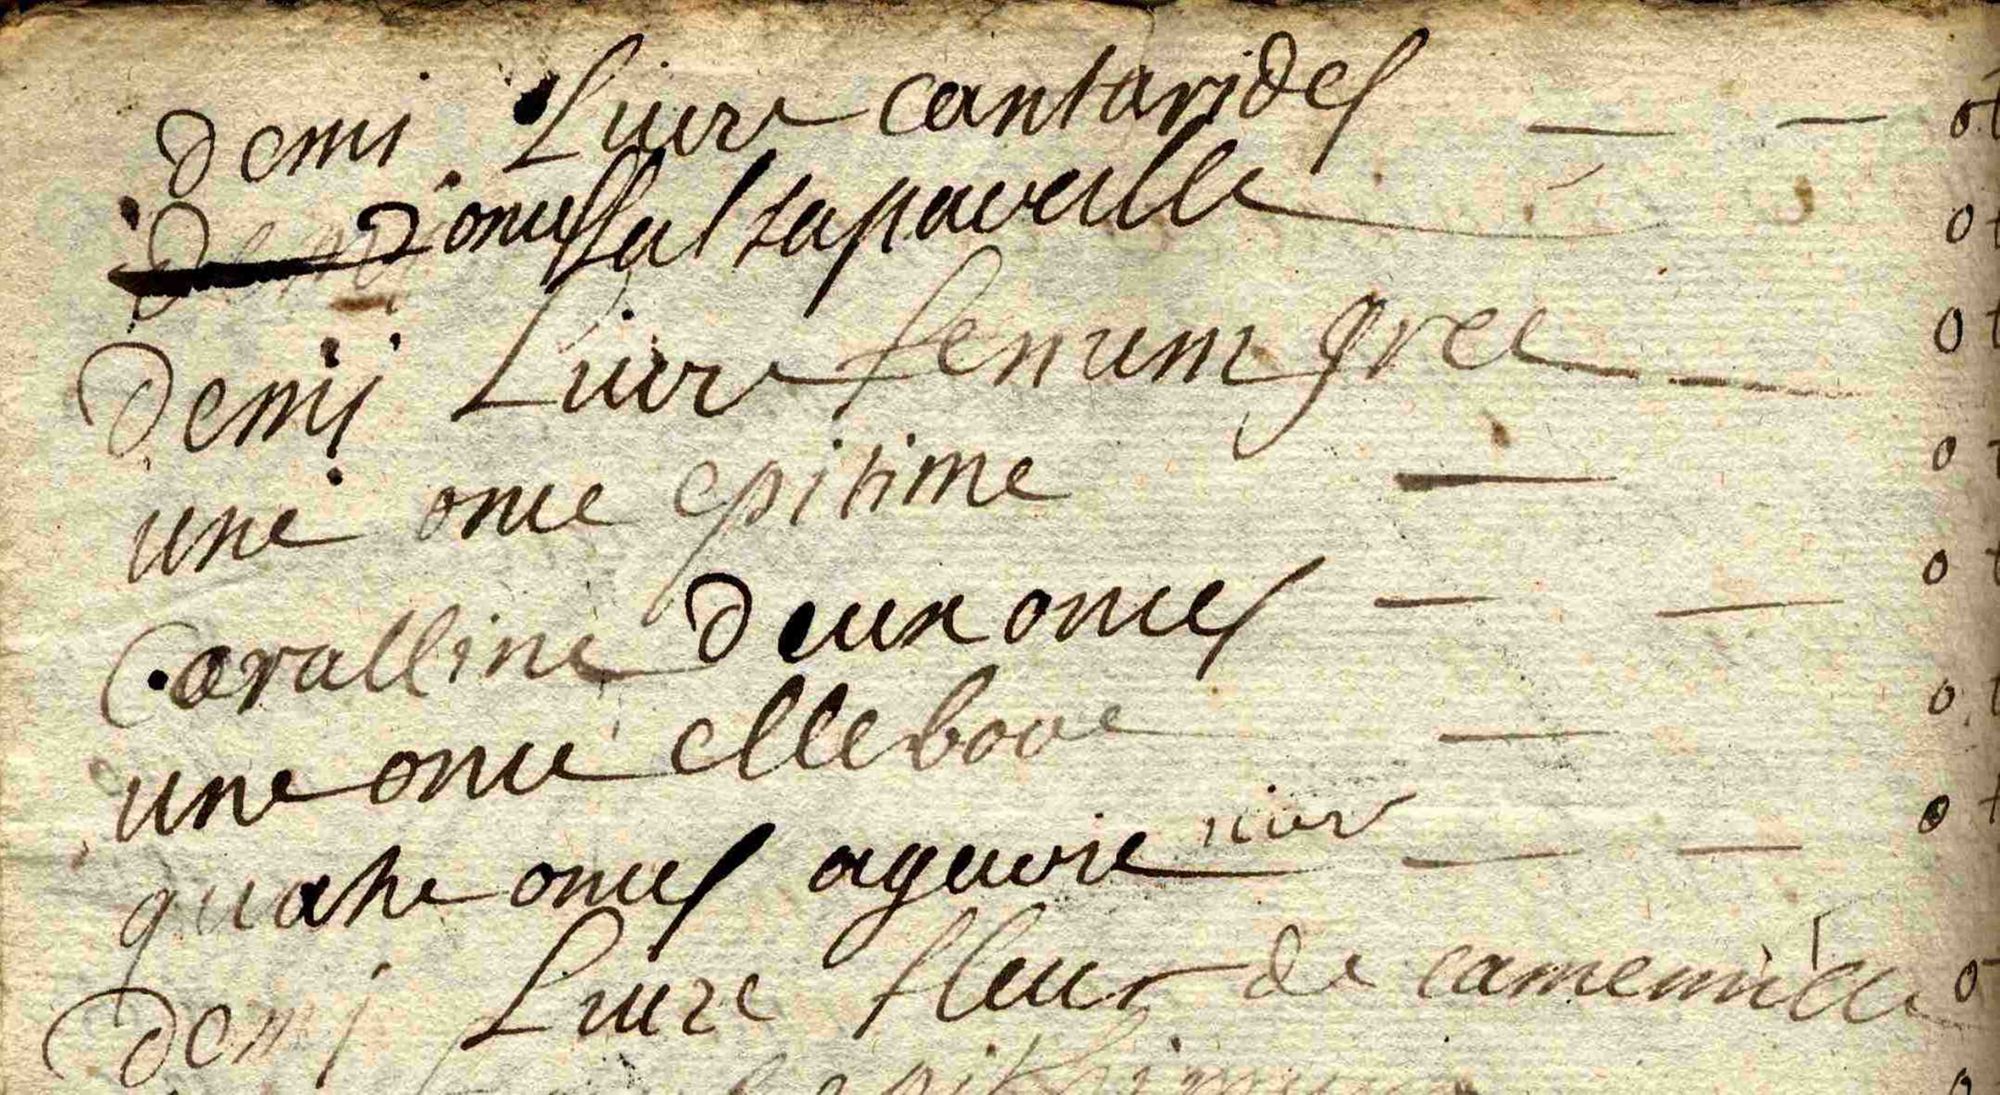 demi Liure cantarides — — o t
2 onces salsapareille o t
demi Liure fenum grec — o t
une once epitime — o
Coralline deux onces — — o t
une once ellebore — o t
noir
quatre onces agaric — — o t
demi Liure fleur de camemille o